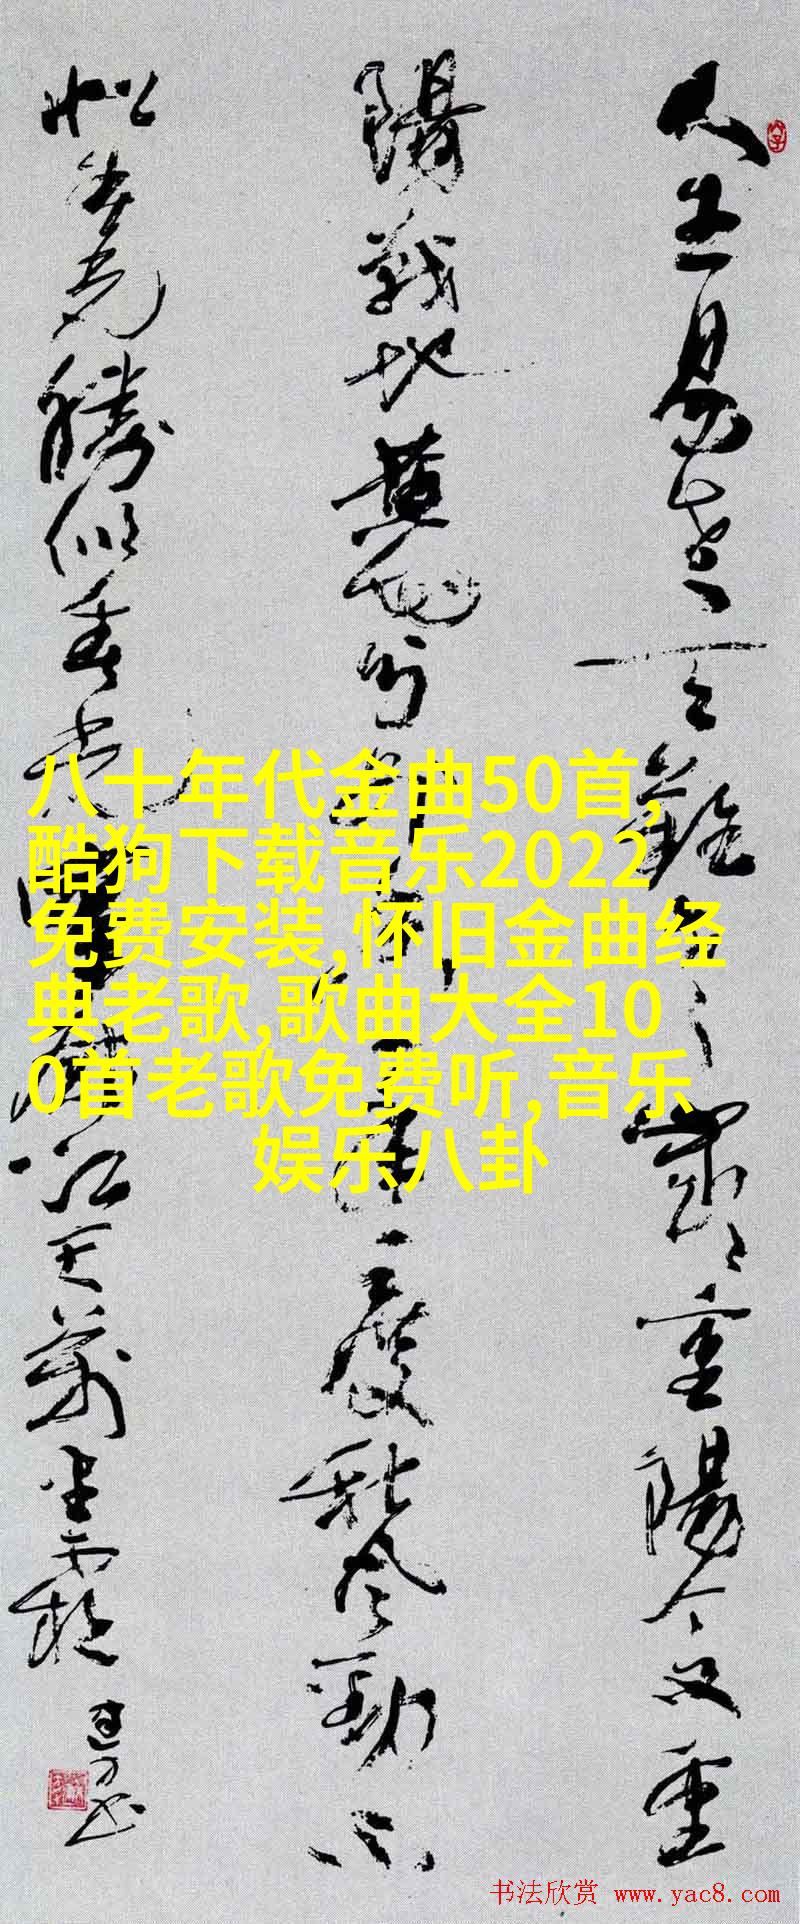 人生易老天難老歲々重陽今又重
陽戰地黃花分外香一年一度秋風勁不
似春光勝似春光寥廓江天萬里霜
八十年代金曲50首,
酷狗下载音乐2022
免费安装,怀旧金曲经
典老歌,歌曲大全10
0首老歌免费听,音乐
娱乐八卦
书法欣赏 www.yac8.com